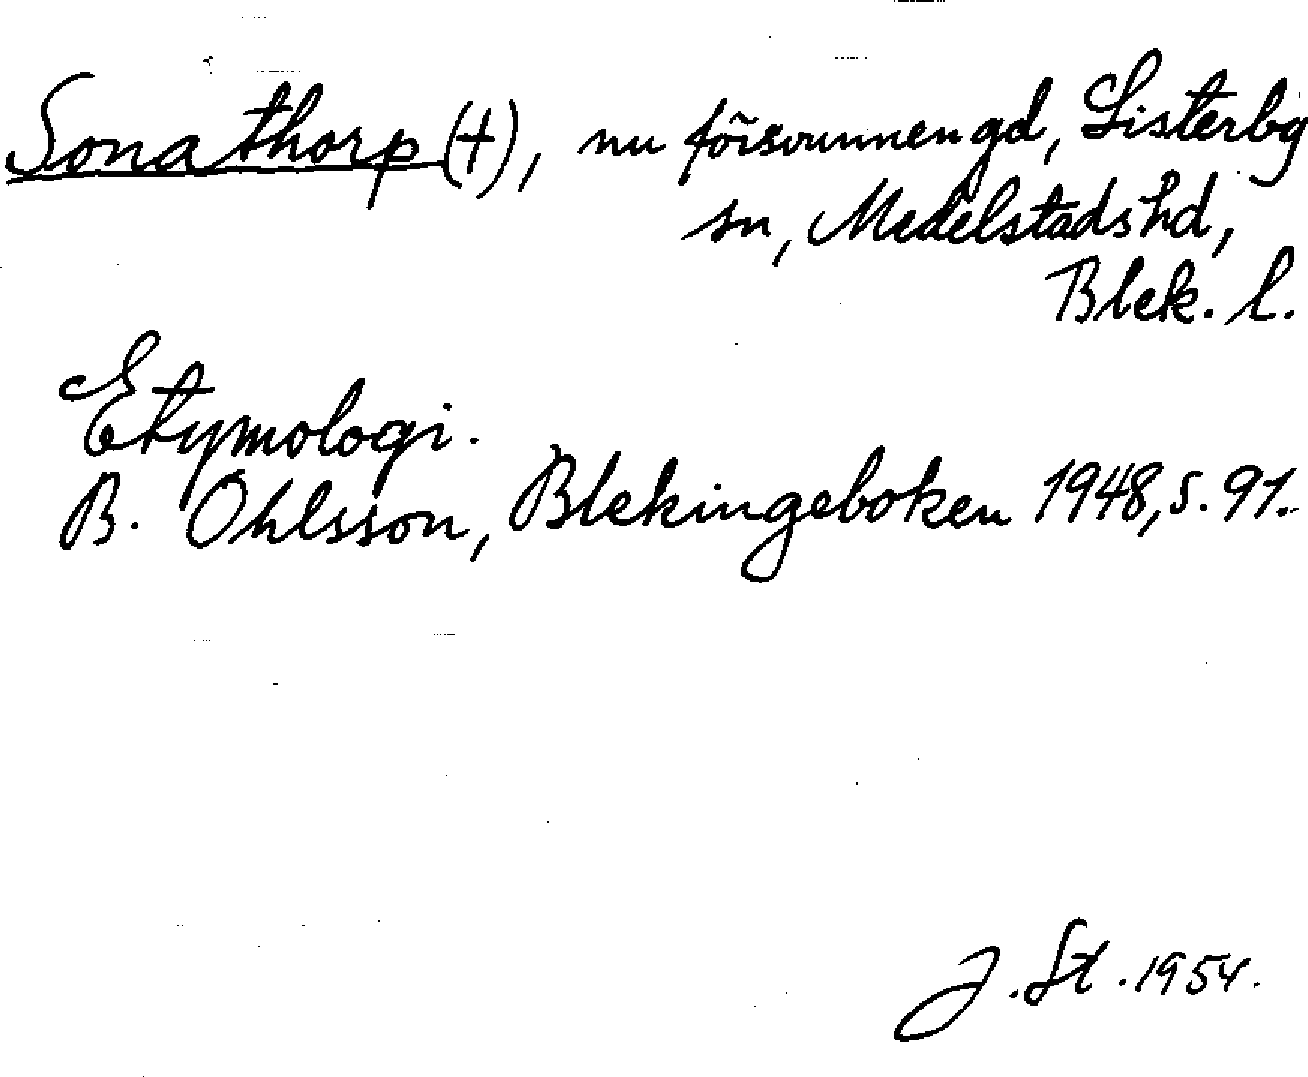 Sonathorp (†), nu försvunnen gd, Listerby
sn, Medelstads hd,
Blek. l.
Etymologi.
B. Ohlsson, Blekingeboken 1948, s. 91.
J. St. 1954.